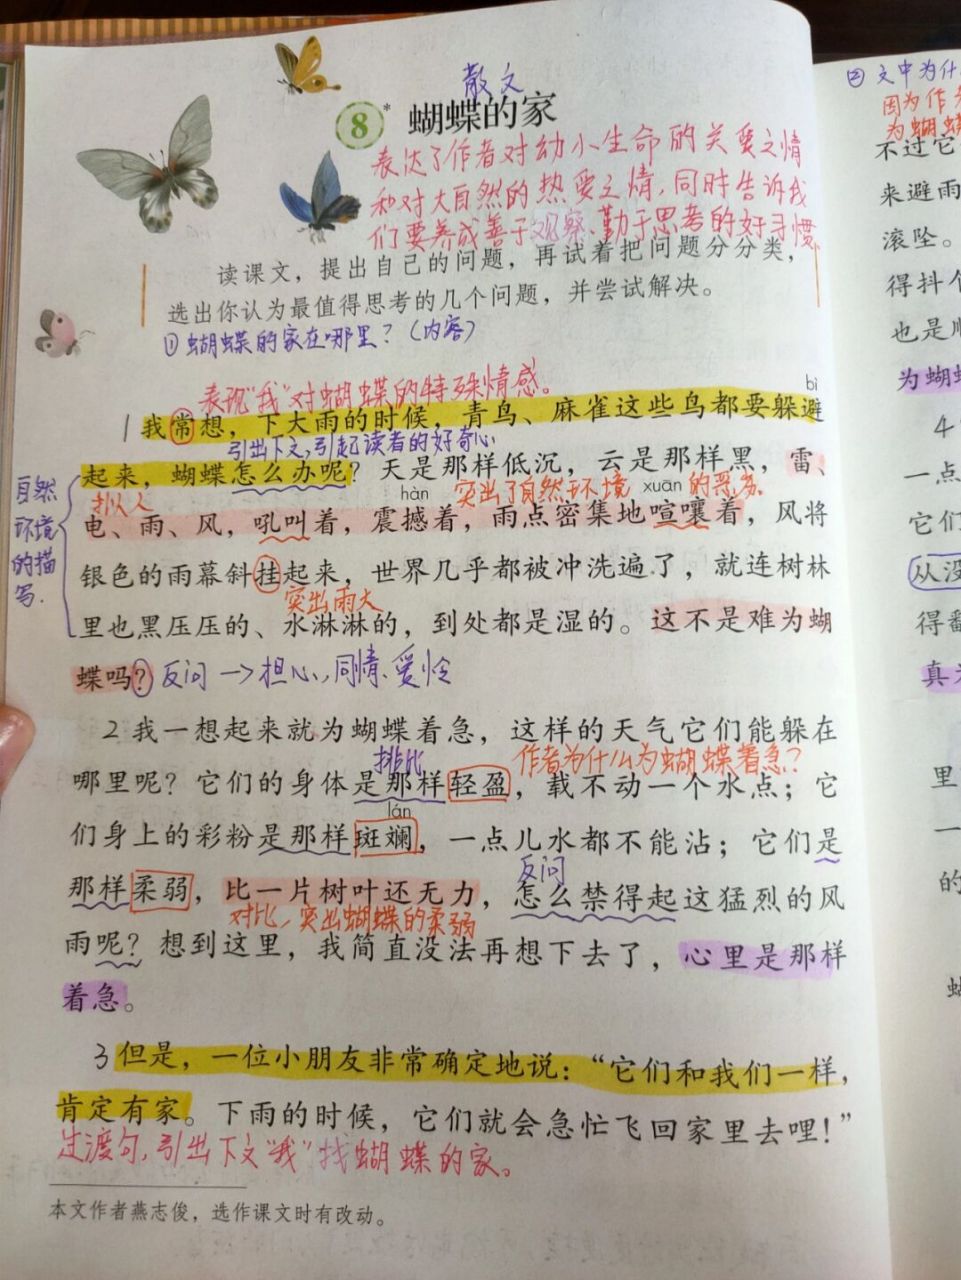 散文
8* 蝴蝶的家
表达了作者对幼小生命的关爱之情
和对大自然的热爱之情,同时告诉我
们要养成善于观察、勤于思考的好习惯
读课文，提出自己的问题，再试着把问题分分类，
选出你认为最值得思考的几个问题，并尝试解决。
①蝴蝶的家在哪里？（内容）
表现"我"对蝴蝶的特殊情感。
bì
1 我常想，下大雨的时候，青鸟、麻雀这些鸟都要躲避
引出下文,引起读者的好奇心
起来，蝴蝶怎么办呢？天是那样低沉，云是那样黑，雷、
拟人 hàn 突出了自然环境 xuān 的恶劣
电、雨、风，吼叫着，震撼着，雨点密集地喧嚷着，风将
自然
环境
的描
写.
银色的雨幕斜挂起来，世界几乎都被冲洗遍了，就连树林
突出雨大
里也黑压压的、水淋淋的，到处都是湿的。这不是难为蝴
蝶吗？反问→担心、同情、爱怜
2 我一想起来就为蝴蝶着急，这样的天气它们能躲在
排比 作者为什么为蝴蝶着急？
哪里呢？它们的身体是那样轻盈，载不动一个水点；它
lán
们身上的彩粉是那样斑斓，一点儿水都不能沾；它们是
反问
那样柔弱，比一片树叶还无力，怎么禁得起这猛烈的风
对比,突出蝴蝶的柔弱
雨呢？想到这里，我简直没法再想下去了，心里是那样
着急。
3 但是，一位小朋友非常确定地说：“它们和我们一样，
肯定有家。下雨的时候，它们就会急忙飞回家里去哩！”
过渡句,引出下文"我"找蝴蝶的家。
本文作者燕志俊，选作课文时有改动。
② 文中为什
因为作
为蝴蝶
不过它
来避雨
滚坠。
得抖个
也是顺
为蝴蝶
4
一点
它们
从没
得翻
真为
里
一
的
蝴